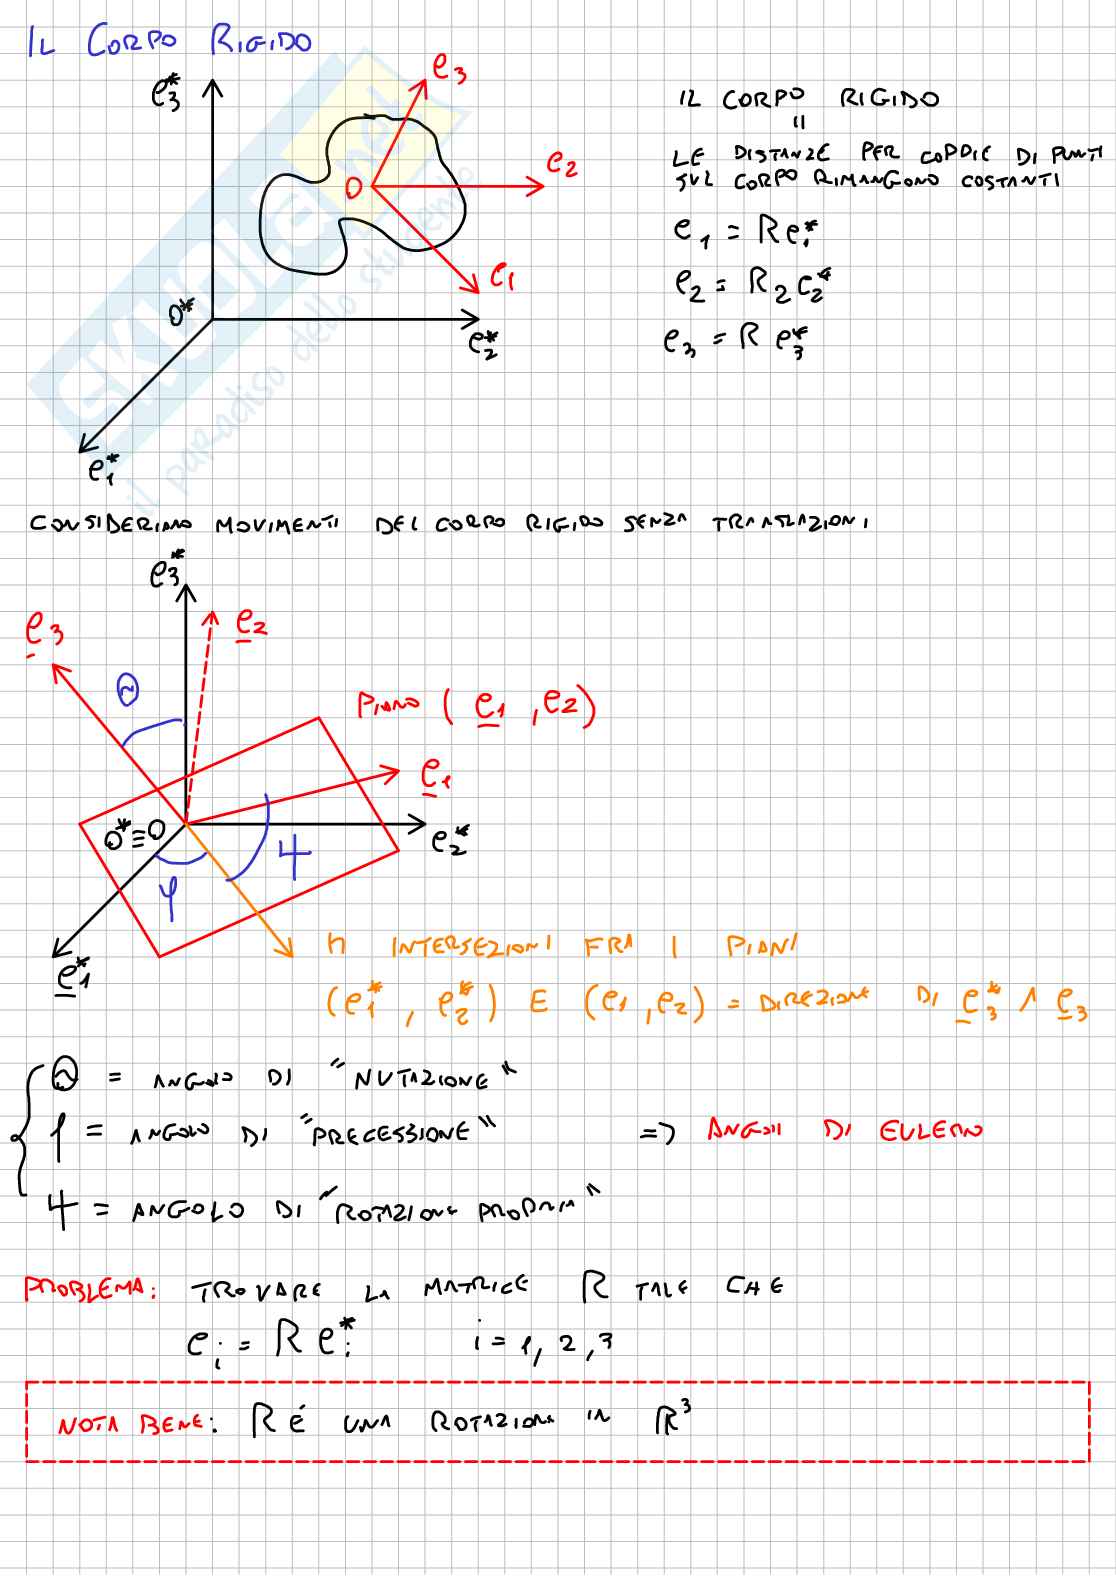 IL CORPO RIGIDO
e3*
e3
e2
O
e1
O*
e2*
e1*
IL CORPO RIGIDO
=
LE DISTANZE PER COPPIE DI PUNTI
SUL CORPO RIMANGONO COSTANTI
e1 = R e1*
e2 = R2 e2*
e3 = R e3*
SKUOLA.net
il paradiso dello studente
CONSIDERIAMO MOVIMENTI DEL CORPO RIGIDO SENZA TRASLAZIONI
e3*
e3
e2
Θ
PIANO (e1, e2)
e1
O*≡O
e2*
φ
ψ
e1*
n INTERSEZIONI FRA I PIANI
(e1*, e2*) E (e1, e2) = DIREZIONE DI e3* ∧ e3
Θ = ANGOLO DI "NUTAZIONE"
φ = ANGOLO DI "PRECESSIONE" => ANGOLI DI EULERO
ψ = ANGOLO DI "ROTAZIONE PROPRIA"
PROBLEMA: TROVARE LA MATRICE R TALE CHE
ei = R ei* i = 1, 2, 3
NOTA BENE: R É UNA ROTAZIONE IN ℝ³